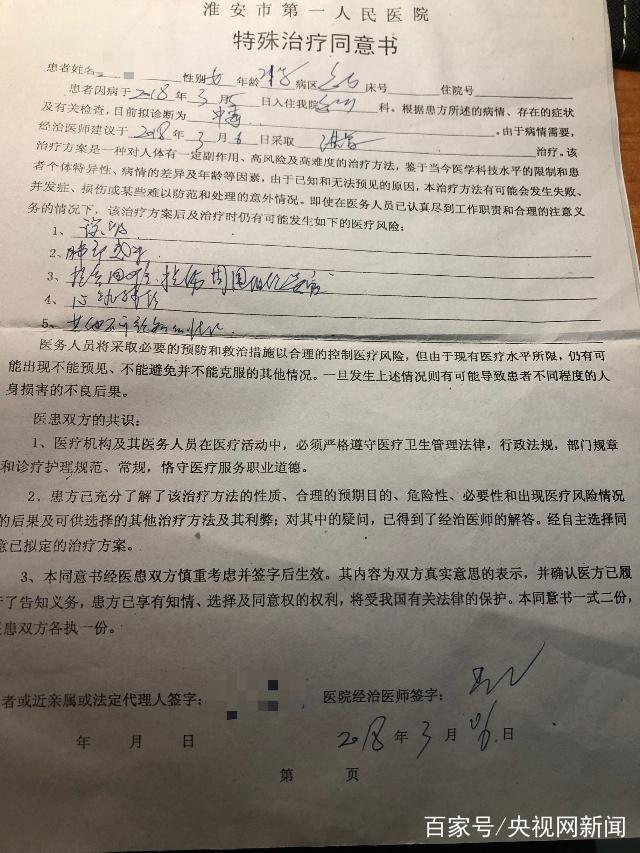 淮安市第一人民医院
特殊治疗同意书
患者姓名 性别 女 年龄 病区 床号 住院号
患者因病于 2018 年 3 月 5 日入住我院 科。根据患方所述的病情、存在的症状
及有关检查，目前拟诊断为 中毒 。由于病情需要，
经治医师建议于 2018 年 3 月 6 日采取 治疗。该
治疗方案是一种对人体有一定副作用、高风险及高难度的治疗方法，鉴于当今医学科技水平的限制和患
者个体特异性、病情的差异及年龄等因素，由于已知和无法预见的原因，本治疗方法有可能会发生失败、
并发症、损伤或某些难以防范和处理的意外情况。即使在医务人员已认真尽到工作职责和合理的注意义
务的情况下，该治疗方案后及治疗时仍有可能发生如下的医疗风险：
1、
2、
3、
4、
5、其他不可预知的情况
医务人员将采取必要的预防和救治措施以合理的控制医疗风险，但由于现有医疗水平所限，仍有可
能出现不能预见、不能避免并不能克服的其他情况。一旦发生上述情况则有可能导致患者不同程度的人
身损害的不良后果。
医患双方的共识：
1、医疗机构及其医务人员在医疗活动中，必须严格遵守医疗卫生管理法律，行政法规，部门规章
和诊疗护理规范、常规，恪守医疗服务职业道德。
2、患方已充分了解了该治疗方法的性质、合理的预期目的、危险性、必要性和出现医疗风险情况
的后果及可供选择的其他治疗方法及其利弊；对其中的疑问，已得到了经治医师的解答。经自主选择同
意已拟定的治疗方案。
3、本同意书经医患双方慎重考虑并签字后生效。其内容为双方真实意思的表示，并确认医方已履
行了告知义务，患方已享有知情、选择及同意权的权利，将受我国有关法律的保护。本同意书一式二份，
医患双方各执一份。
者或近亲属或法定代理人签字： 医院经治医师签字：
年 月 日 2018 年 3 月 日
第 页
百家号/央视网新闻